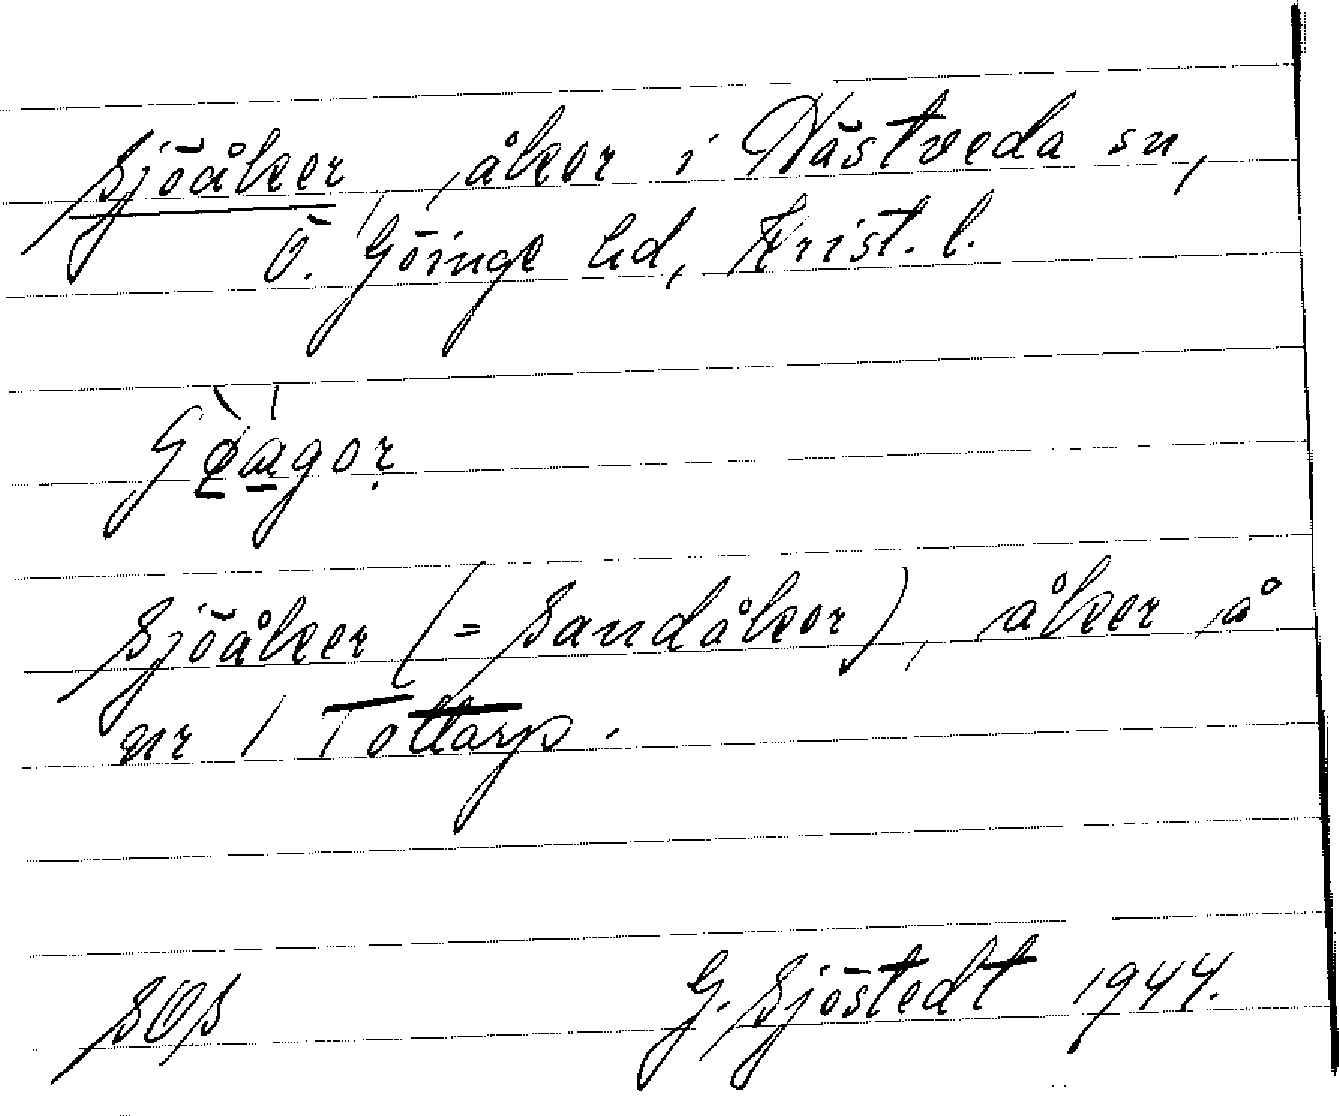 Sjöåker, åker i Hästveda sn,
Ö. Göinge hd, Krist. l.
Sjöåker (= Sandåker), åker å
nr 1 Tottarp.
SOS G. Sjöstedt 1944.